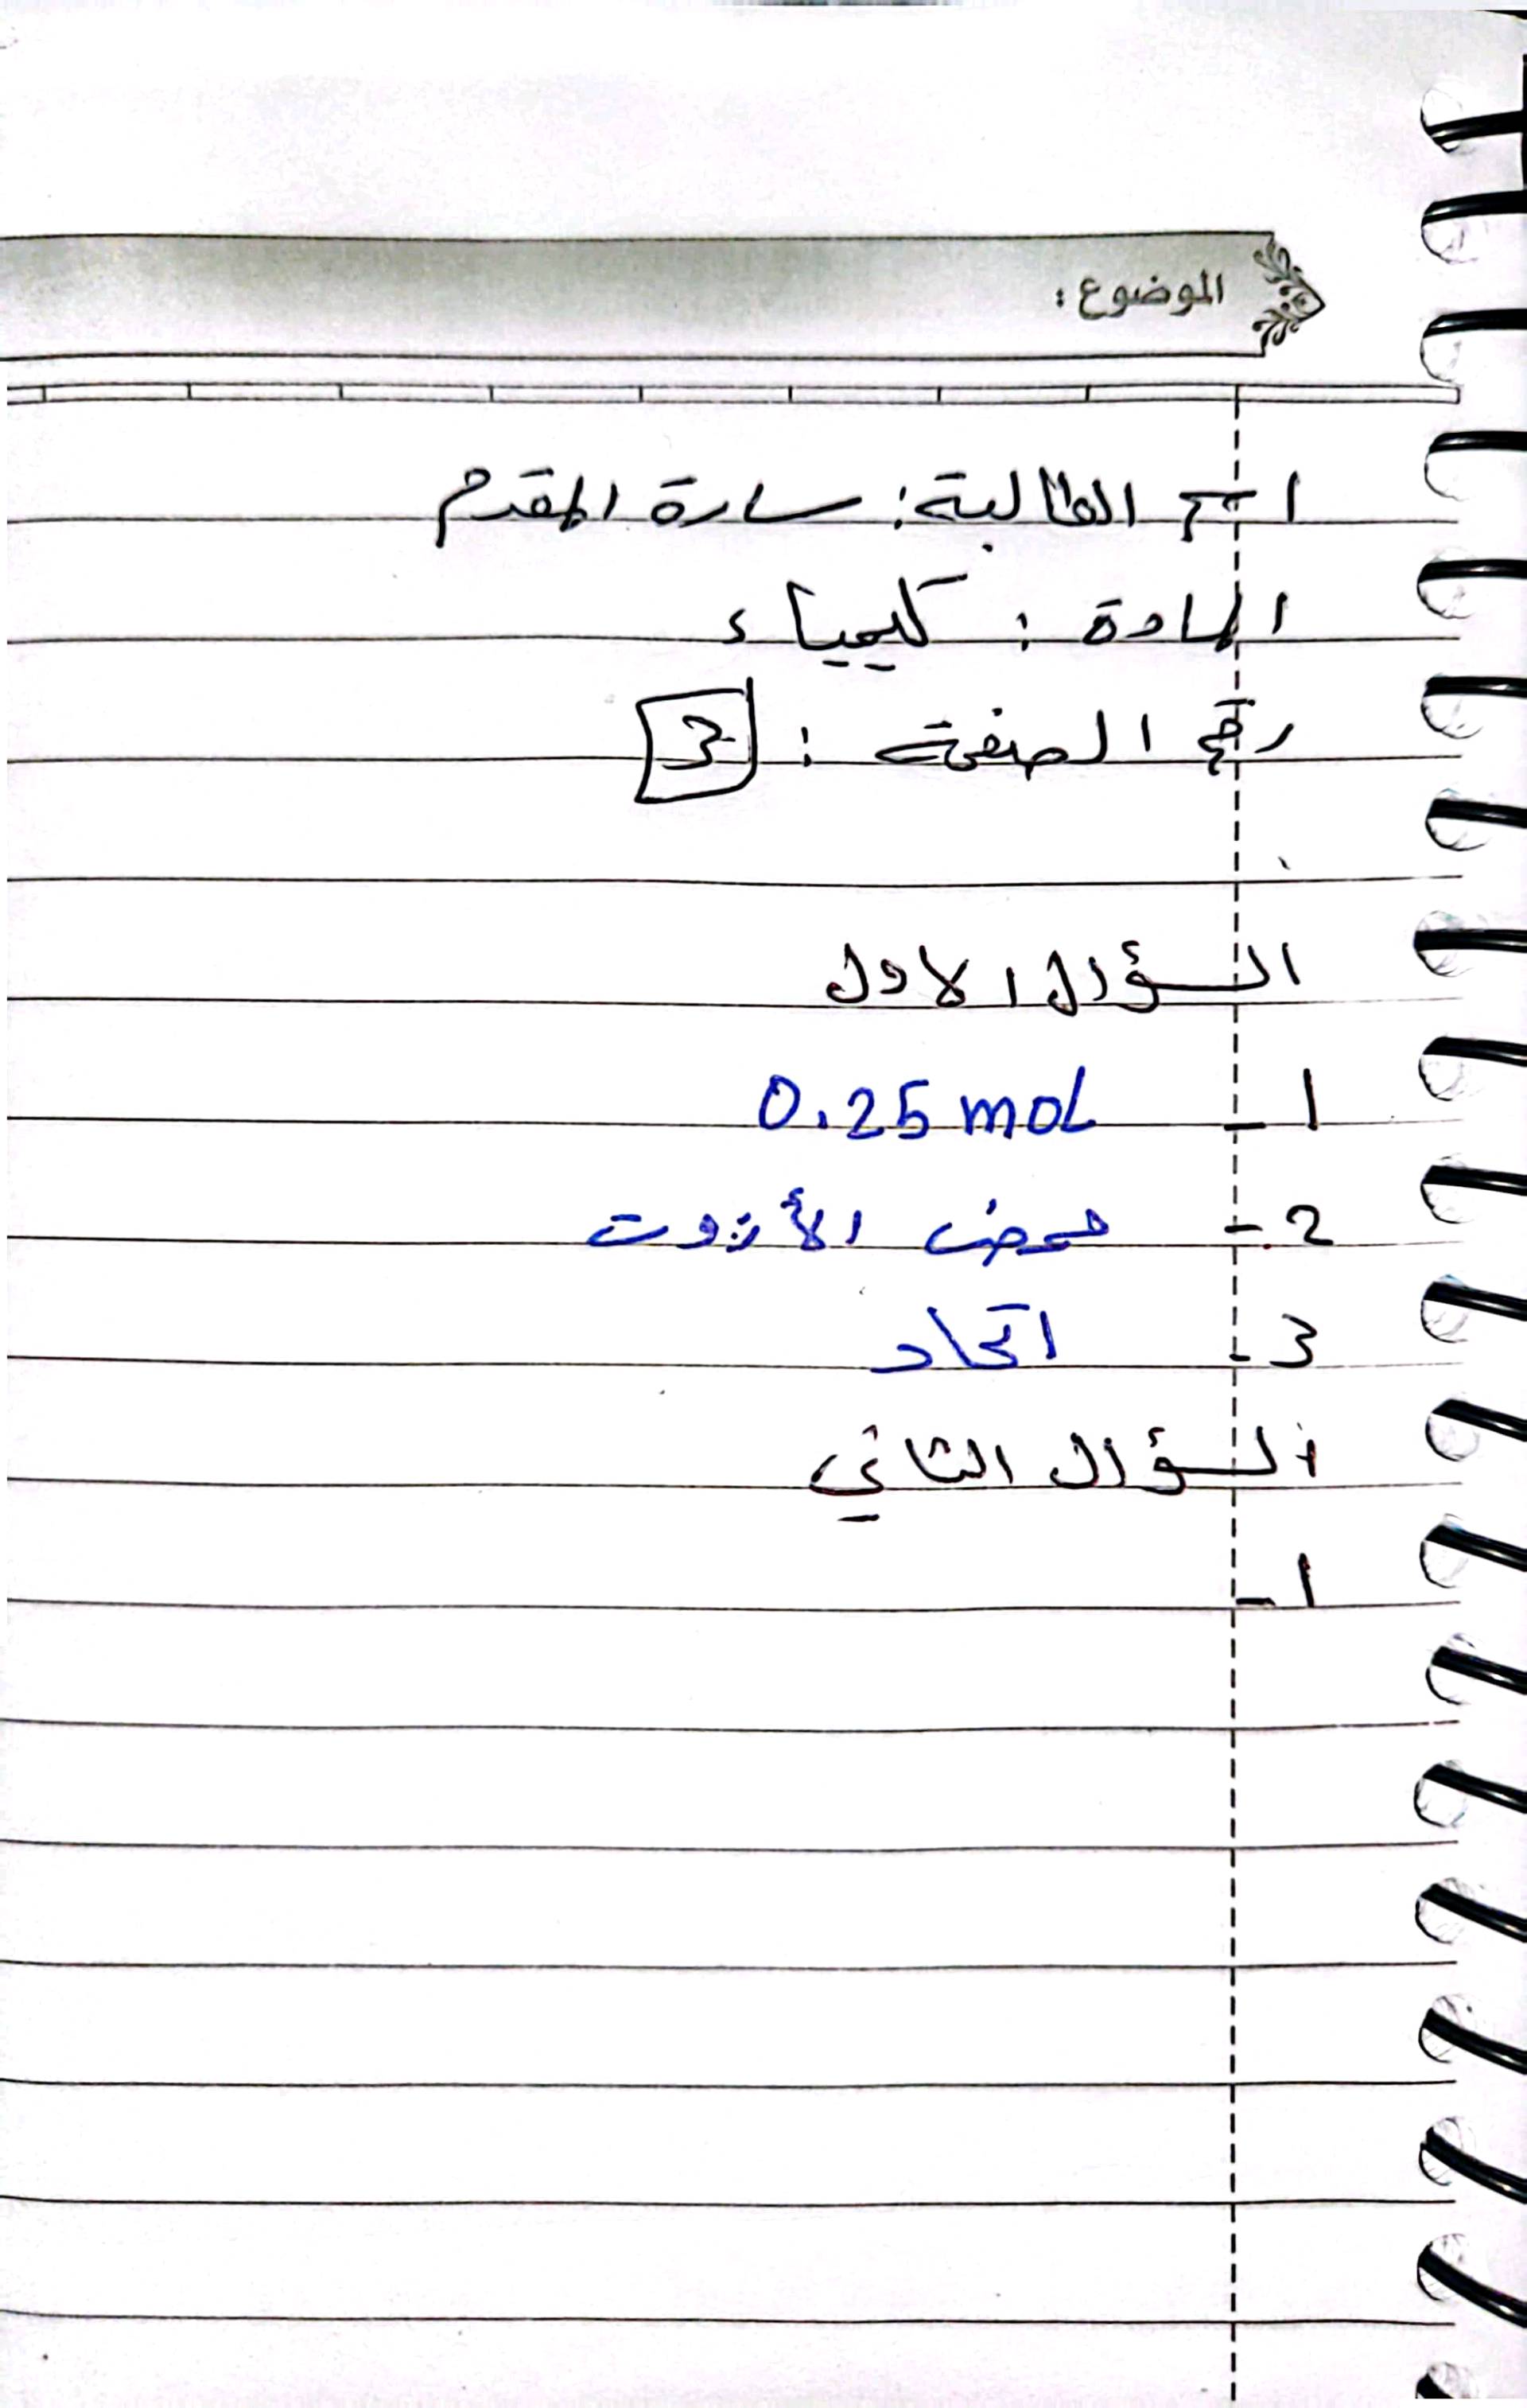 الموضوع :
اسم الطالبة: سارة المقدم
المادة : كيمياء
رقم الصفحة : 3
السؤال الاول
1 - 0.25 mol
2 - حمض الأزوت
3 - اتحاد
السؤال الثاني
1 -